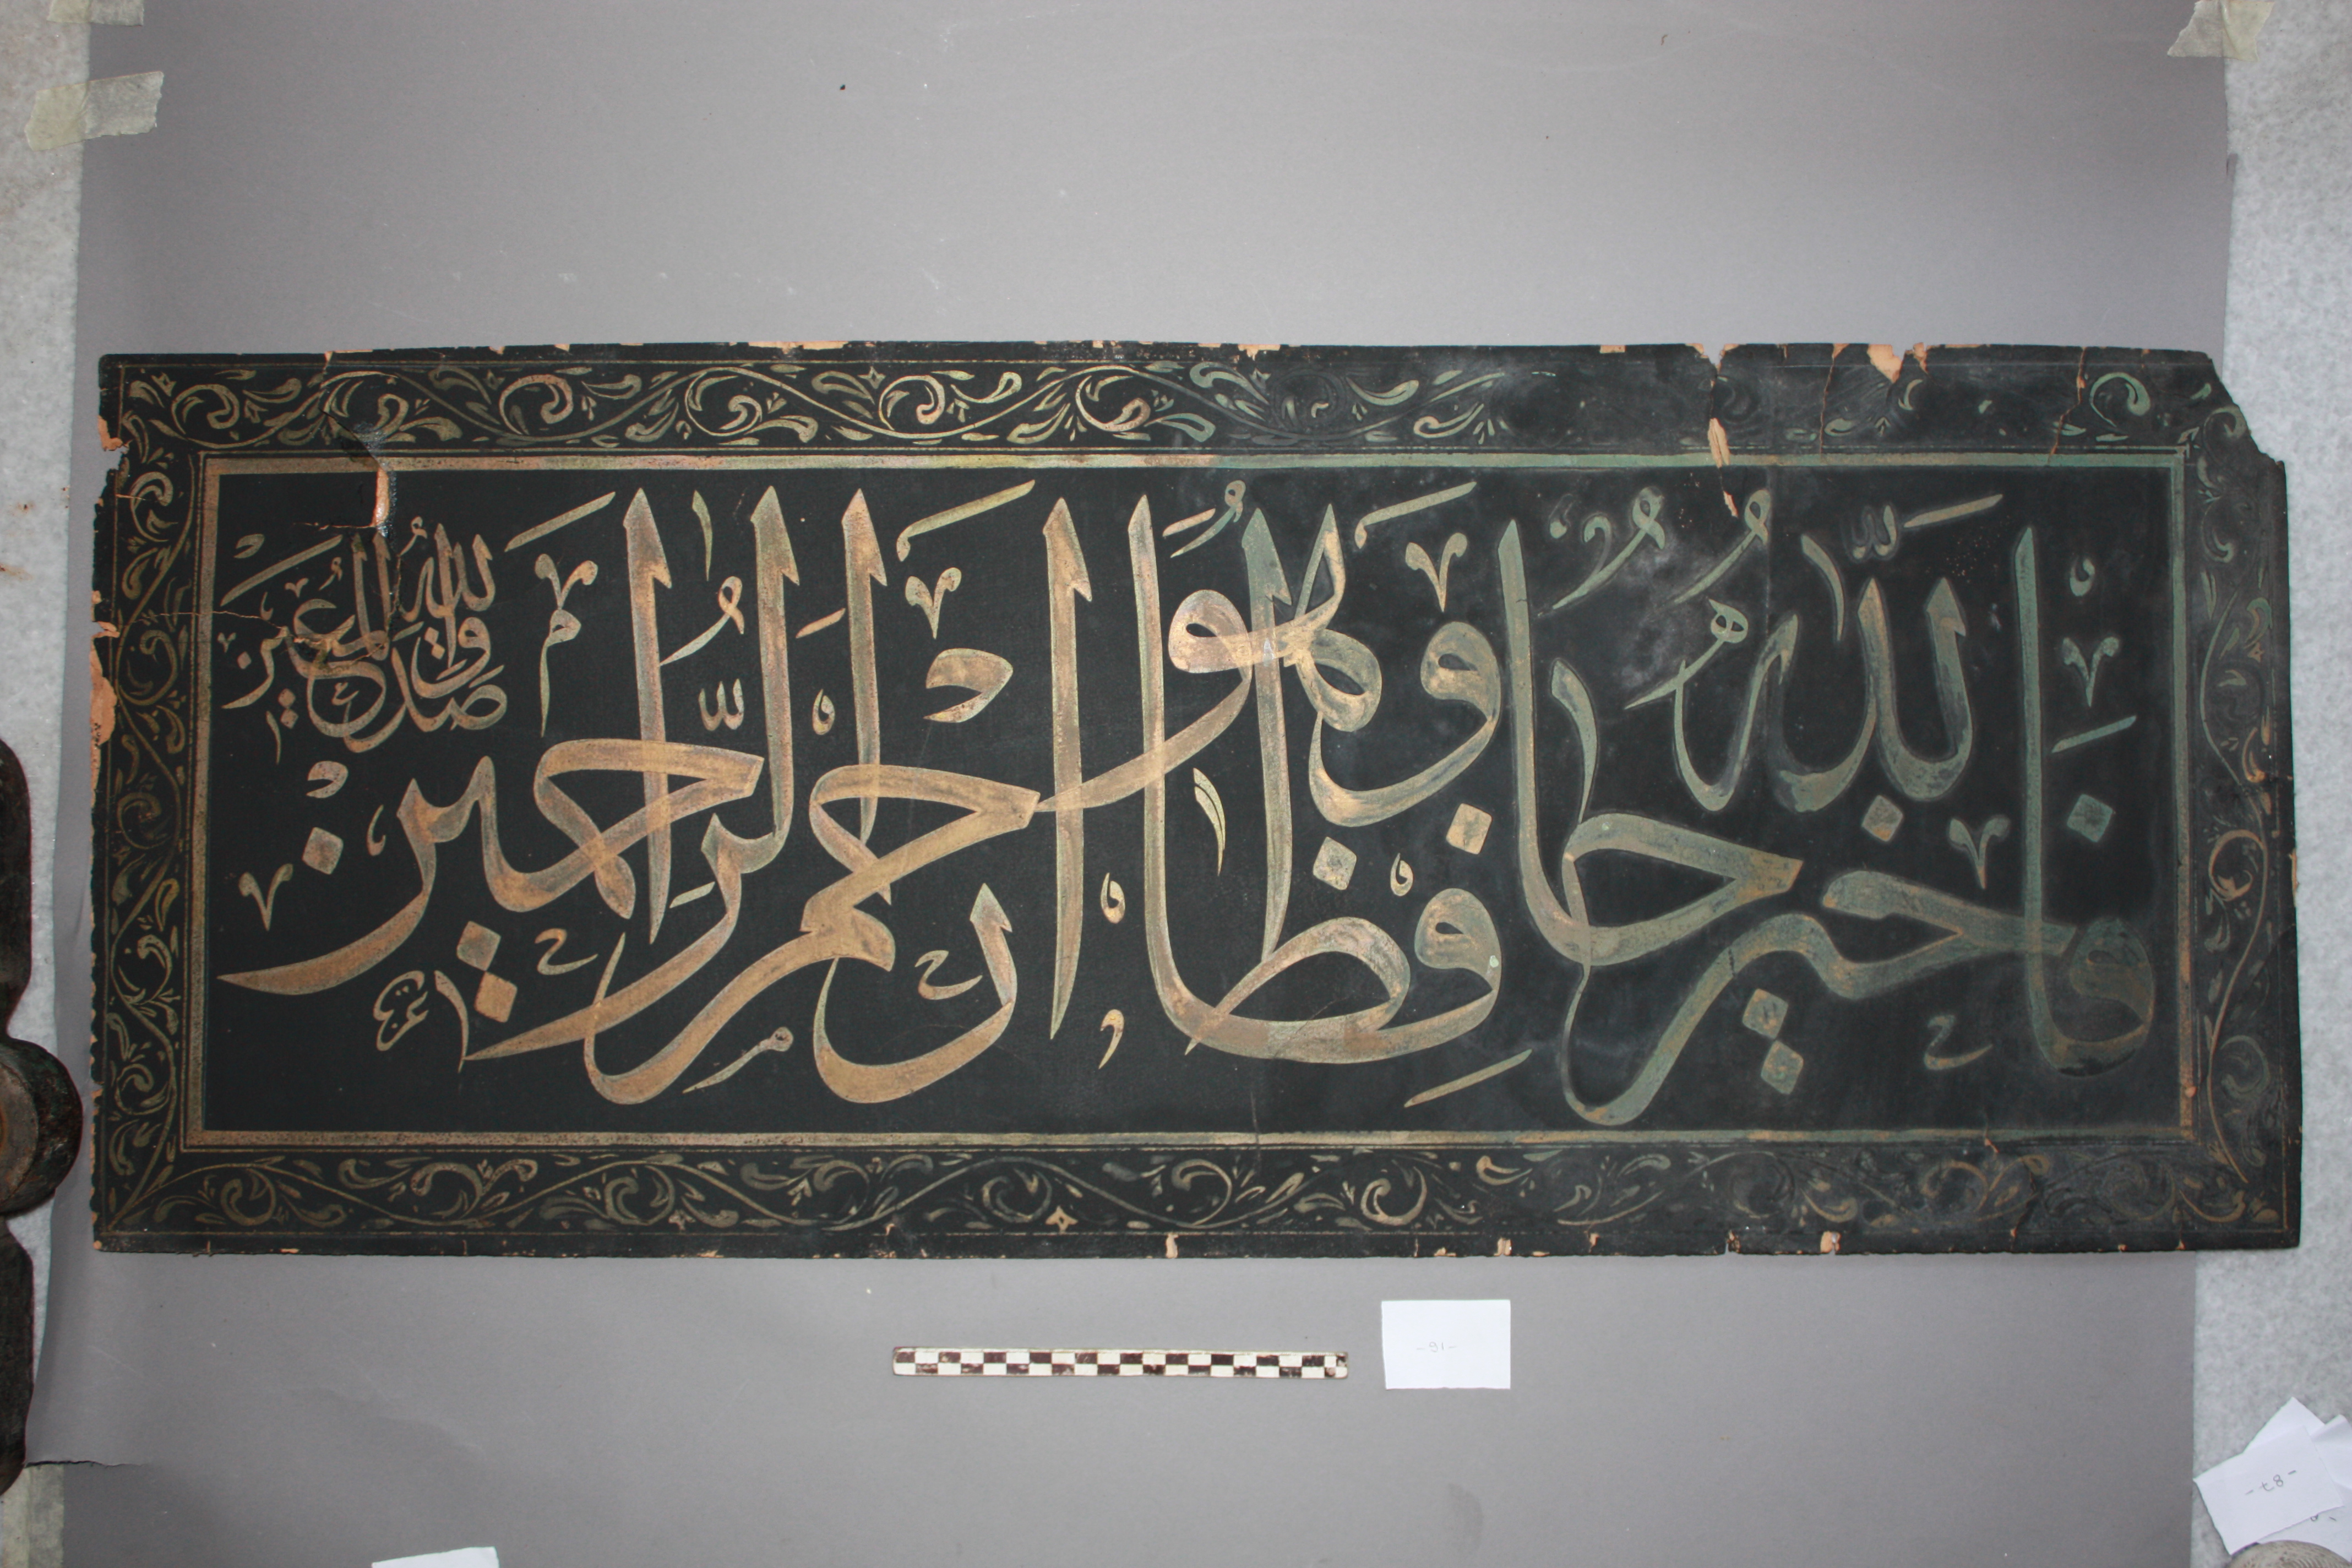 فَاللّٰهُ خَيْرٌ حَافِظًا وَهُوَ أَرْحَمُ الرَّاحِمِينَ
صدق الله المعين